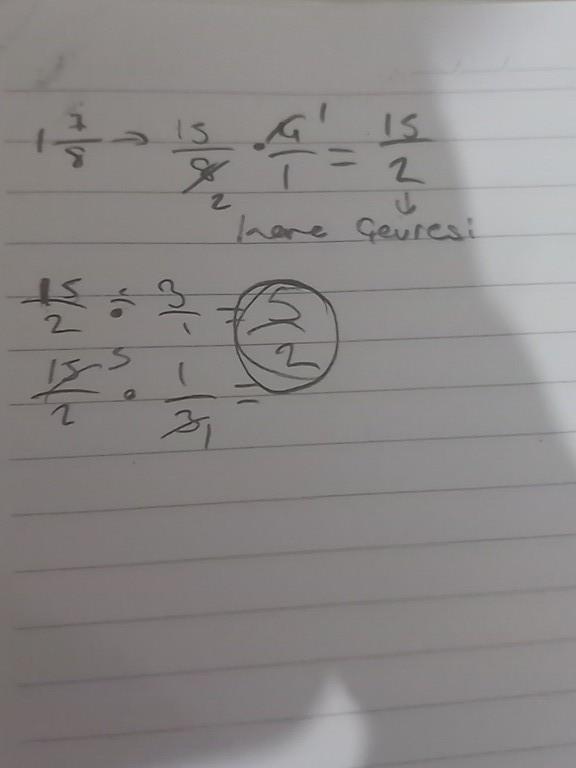 1 7/8 → 15/8 2 · 4/1 1 = 15/2
↓
kare Çevresi
15/2 ÷ 3/1 = 5/2
15/2 5 · 1/3 1 =